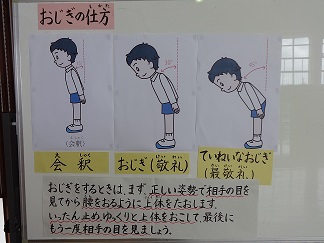 おじぎの仕方
(会釈)
会釈
おじぎ(敬礼)
ていねいなおじぎ
(最敬礼)
おじぎをするときは、まず、正しい姿勢で相手の目を
見てから腰をおるように上体をたおします。
いったん止め、ゆっくりと上体をおこして、最後に
もう一度相手の目を見ましょう。